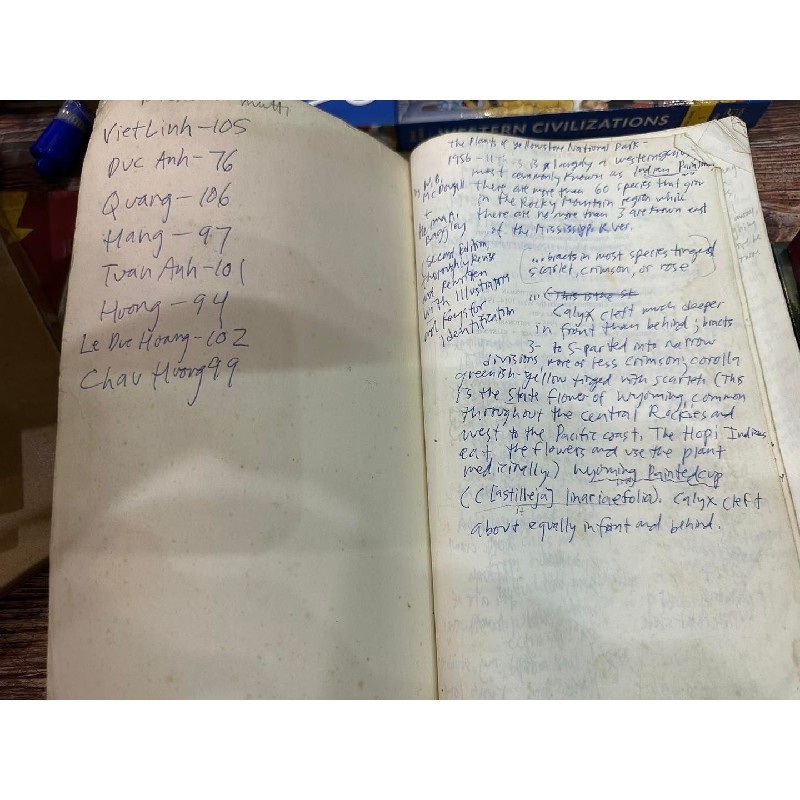 multi
VietLinh-105
Duc Anh-76
Quang-106
Hang-97
Tuan Anh-101
Huong-94
Le Duc Hoang-102
Chau Huong 99
WESTERN CIVILIZATIONS
The Plants of Yellowstone National Park-
1956 - is a largely a western
most commonly known as Indian
there are more than 60 species that grow
in the Rocky Mountain region while
there are no more than 3 are known east
of the Mississippi River.
by M.B.
McDougall
+
Herma A.
Baggley
second Edition
thoroughly Revised
and Rewritten
with Illustrations
and Keys for
identification
...bracts in most species tinged
scarlet, crimson, or rose
... (This is the St
Calyx cleft much deeper
in front than behind; bracts
3- to 5-parted into narrow
divisions more or less crimson; corolla
greenish-yellow tinged with scarlet. (This
is the State flower of Wyoming, common
throughout the central Rockies and
west to the Pacific coast. The Hopi Indians
eat the flowers and use the plant
medicinally.) Wyoming Paintedcup
(C[astilleja] linariaefolia). Calyx cleft
about equally in front and behind.